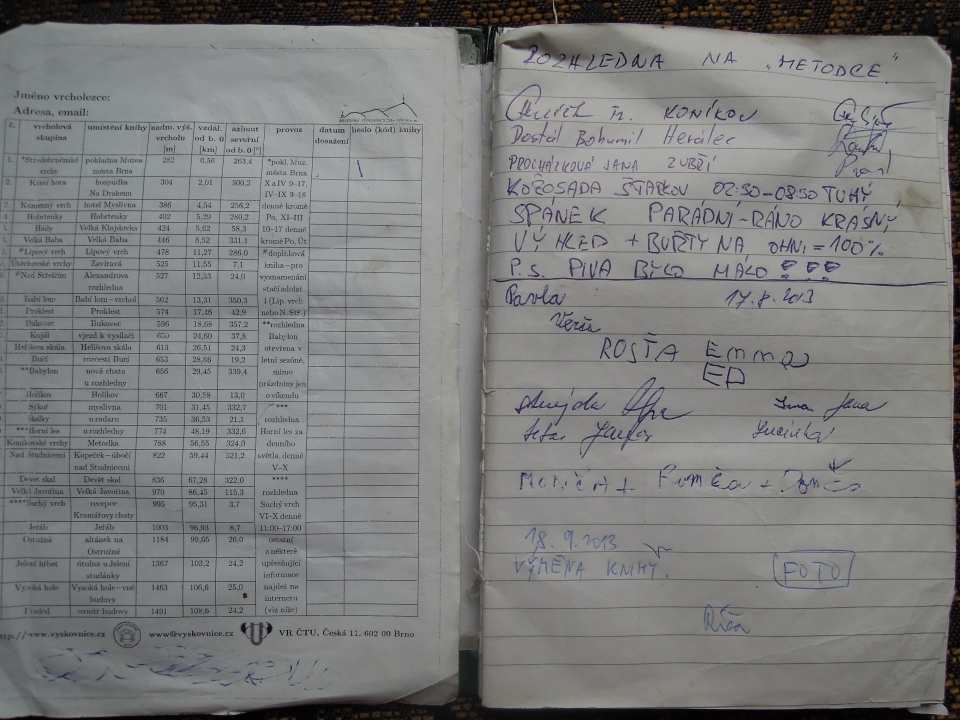 Jméno vrcholezce:
Adresa, email:
č. vrcholová skupina umístění knihy nadm. výš. vrcholu [m] vzdál. od b. 0 [km] azimut severní od b. 0 [°] provoz datum dosažení heslo (kód) knihy
1. *Starobrněnské vrchy pokladna Muzea města Brna 282 0,56 263,4 *pokl. Muz. města Brna
2. Kraví hora hospůdka Na Drakenu 304 2,01 300,2 X a IV 9–17, IV–IX 9–18
3. Kamenný vrch hotel Myslivna 386 4,54 256,2 denně kromě
Holedníky 402 5,29 280,2 Po, XI–III
Hády Velká Klajdovka 424 5,62 58,3 10–17 denně
Velká Baba Velká Baba 446 8,52 331,1 kromě Po, Út
*Lipový vrch Lipový vrch 478 11,27 286,0 *doplňková
Zavíravá 525 11,55 7,1 kniha – pro
*Nad Střelčím Alexandrova rozhledna 527 12,33 24,0 vyznamenání stačí zdolat
Babí lom Babí lom – vrchol 562 13,31 350,3 1 (Lip. vrch
Proklest Proklest 574 17,46 42,9 nebo N. Stř.)
Bukovec Bukovec 596 18,68 357,2 **rozhledna
Kojál vjezd k vysílači 600 24,60 37,8 Babylon
Helišova skála Helišova skála 613 26,51 24,3 otevřena v
Bučí rozcestí Bučí 653 28,66 19,2 letní sezóně,
**Babylon nová chata u rozhledny 656 29,45 339,4 mimo prázdniny jen
Holíkov Holíkov 667 30,58 13,0 o víkendu
Sýkoř myslivna 701 31,45 332,7 ***
Skalky u radaru 735 36,53 21,1 rozhledna
***Horní les u rozhledny 774 48,19 332,6 Horní les za
Koníkovské vrchy Metodka 788 56,55 324,0 denního
Nad Studnicemi Kopeček – úbočí nad Studnicemi 822 59,44 321,2 světla, denně V–X
Devět skal Devět skal 836 67,28 322,0 ****
Velká Javořina Velká Javořina 970 86,45 115,3 rozhledna
****Suchý vrch recepce Kramářovy chaty 995 95,31 3,7 Suchý vrch VI–X denně
Jeřáb Jeřáb 1003 96,93 8,7 11:00–17:00
Ostružná altánek na Ostružné 1184 99,65 26,0 ostatní a některé
Jelení hřbet útulna u Jelení studánky 1367 103,2 24,2 upřesňující informace
Vysoká hole Vysoká hole – vně budovy 1463 106,6 25,0 najdeš na internetu
Praděd uvnitř budovy 1491 108,6 24,2 (viz níže)
http://www.vyskovnice.cz www@vyskovnice.cz VR ČTU, Česká 11, 602 00 Brno
ROZHLEDNA NA „METODCE"
KONÍKOV
Dostál Bohumil Herálec
PROCHÁZKOVÁ JANA ZUBŘÍ
KOŽOSADA ŠTARKOV 02:30–08:30 TUHÝ
SPÁNEK PARÁDNÍ–RÁNO KRÁSNÝ
VÝHLED + BUŘTY NA OHNI = 100%
P.S. PIVA BYLO MÁLO !!!
Pavla 17.8.2013
Verča
ROSŤA Emma
ED
Jana
Lucinka
18.9.2013
VÝMĚNA KNIHY. FOTO